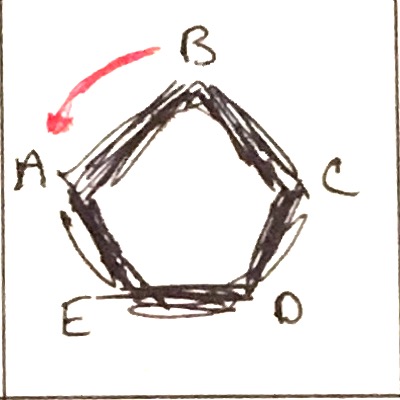 B
A C
E D